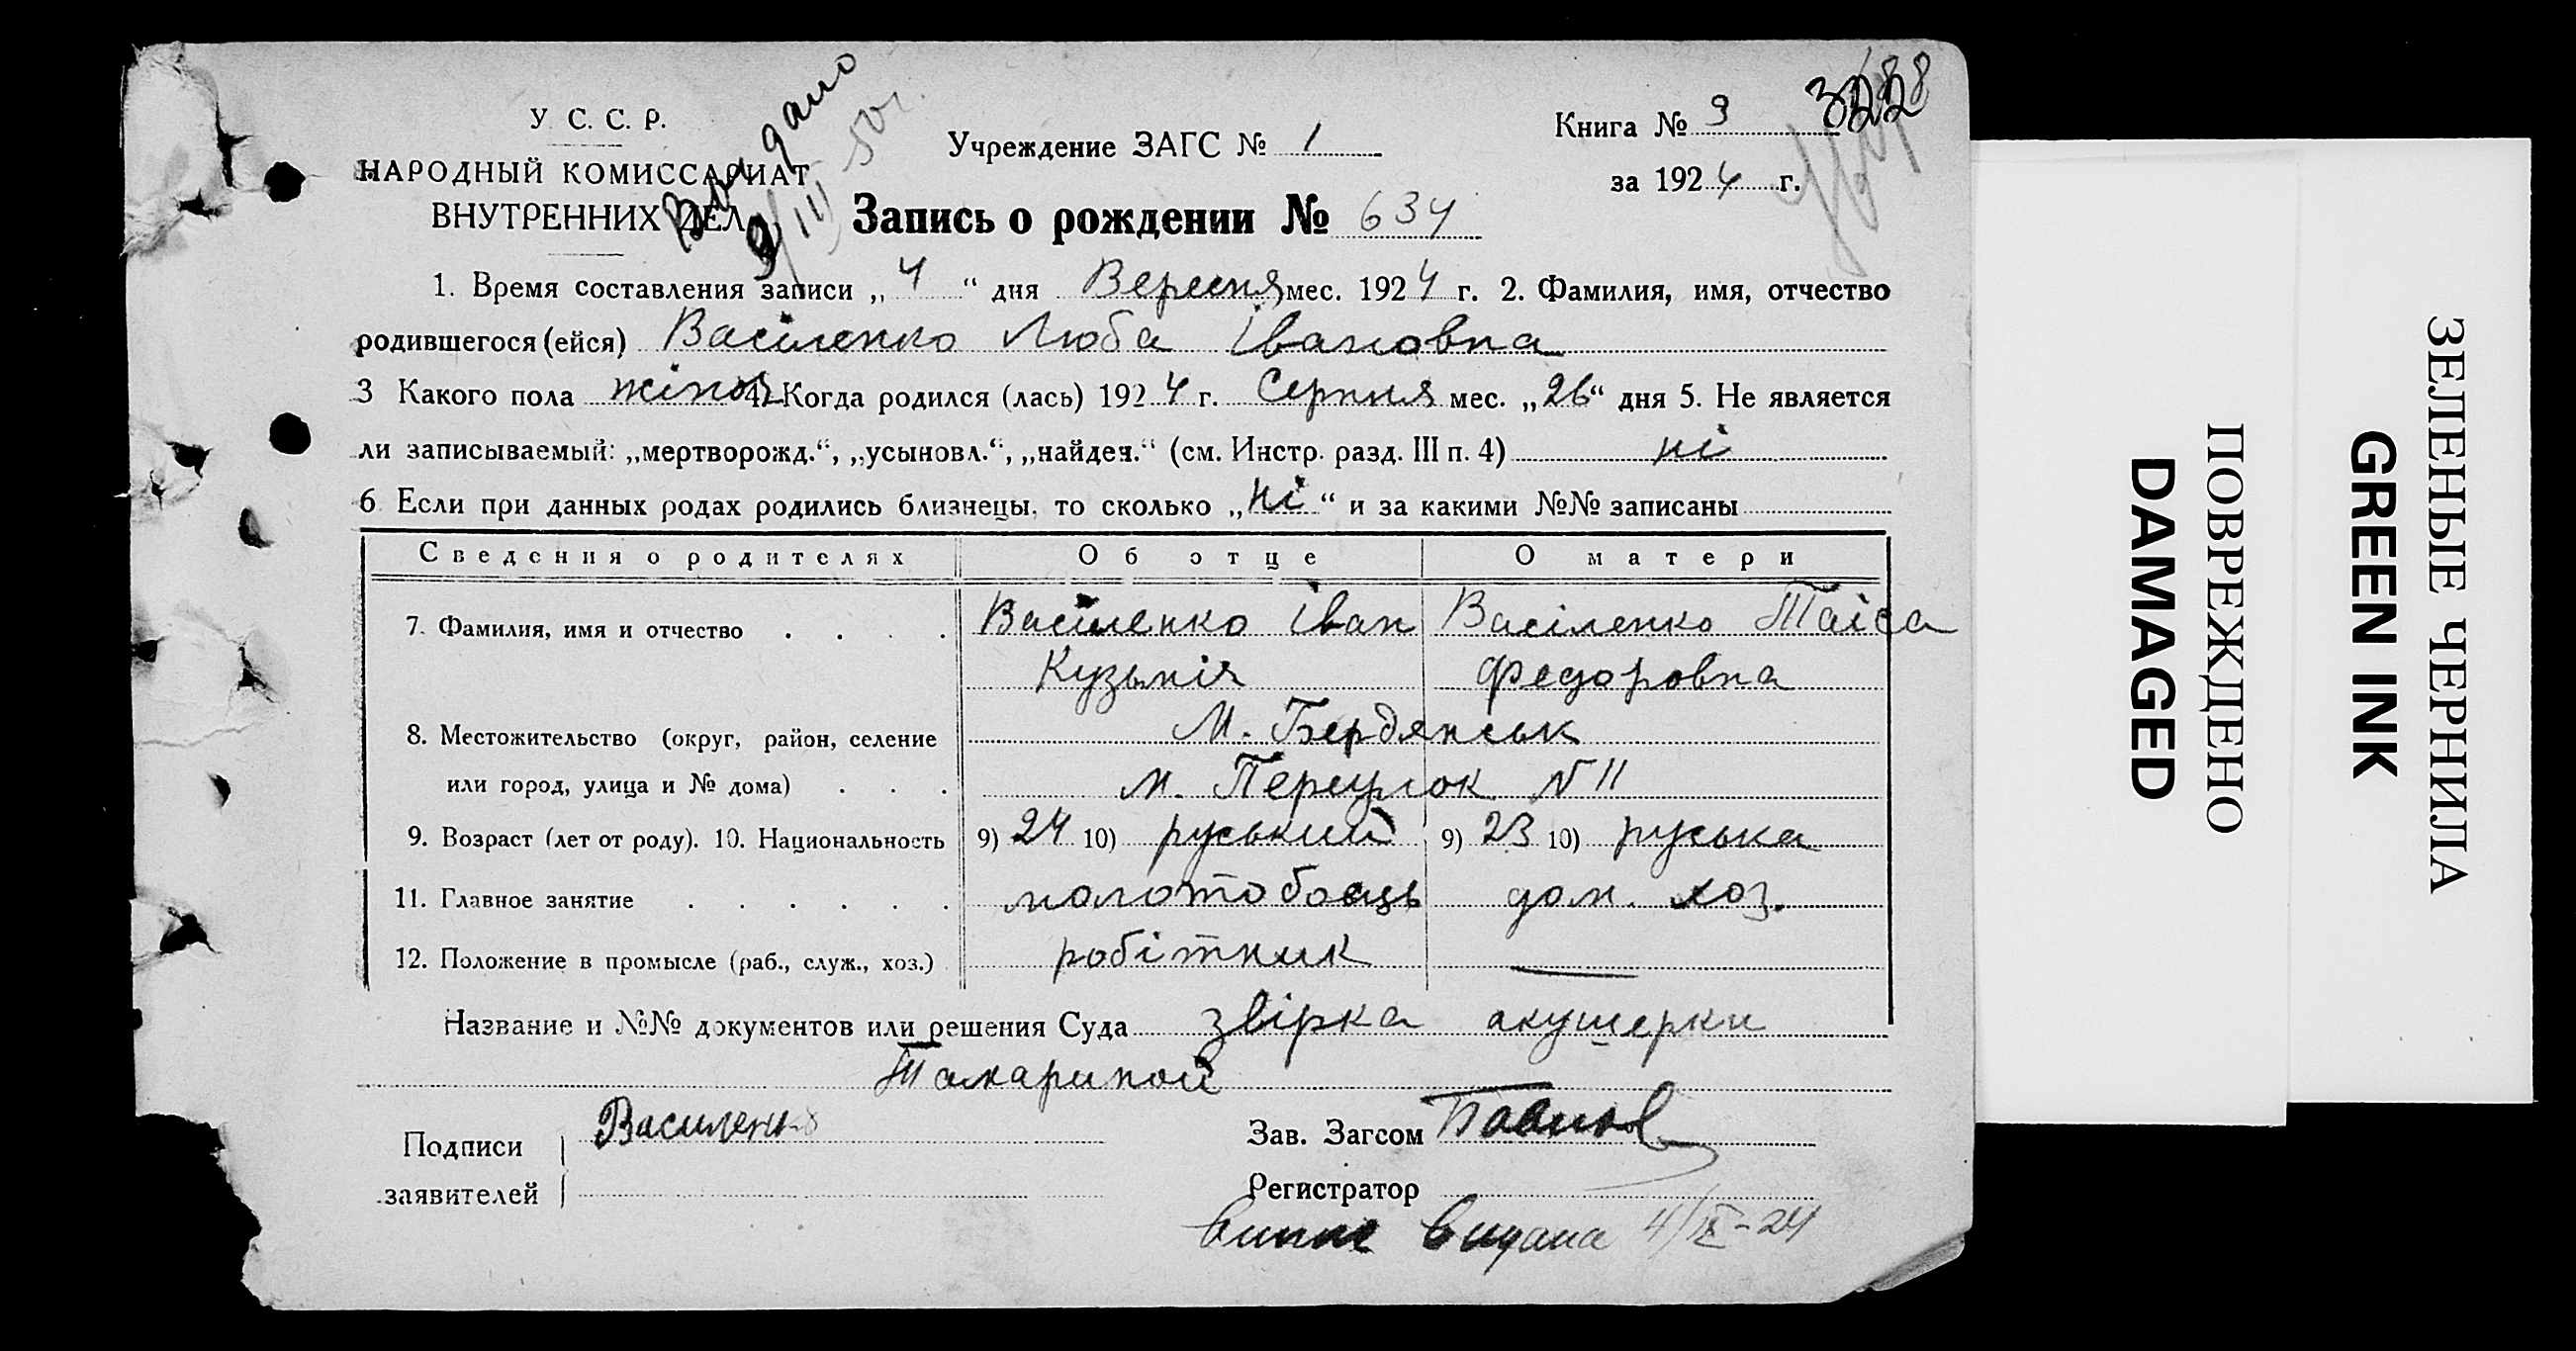 У. С. С. Р.
НАРОДНЫЙ КОМИССАРИАТ
ВНУТРЕННИХ ДЕЛ
Видано
9/III 50 г.
Учреждение ЗАГС № 1
Книга № 9
за 1924 г.
Запись о рождении № 634
1. Время составления записи „4“ дня Вересня мес. 1924 г. 2. Фамилия, имя, отчество
родившегося (ейся) Васіленко Люба Івановна
3 Какого пола жіноч. 4. Когда родился (лась) 1924 г. Серпня мес. „26“ дня 5. Не является
ли записываемый: „мертворожд.“, „усыновл.“, „найден.“ (см. Инстр. разд. III п. 4) ні
6 Если при данных родах родились близнецы, то сколько „ні“ и за какими №№ записаны
Сведения о родителях Об отце О матери
7. Фамилия, имя и отчество . . . . Васіленко Іван Васіленко Таіса
Кузьміч Федоровна
8. Местожительство (округ, район, селение М. Бердянськ
или город, улица и № дома) . . . м. Переулок N 11
9. Возраст (лет от роду). 10. Национальность 9) 24 10) руський 9) 23 10) руська
11. Главное занятие . . . . . . молотобоець дом. хоз.
12. Положение в промысле (раб., служ., хоз.) робітник —
Название и №№ документов или решения Суда звірка акушерки
Тамариной
Подписи Василенко
заявителей
Зав. Загсом Павлов
Регистратор
видана 4/IX-24
ПОВРЕЖДЕНО
DAMAGED
ЗЕЛЕНЫЕ ЧЕРНИЛА
GREEN INK